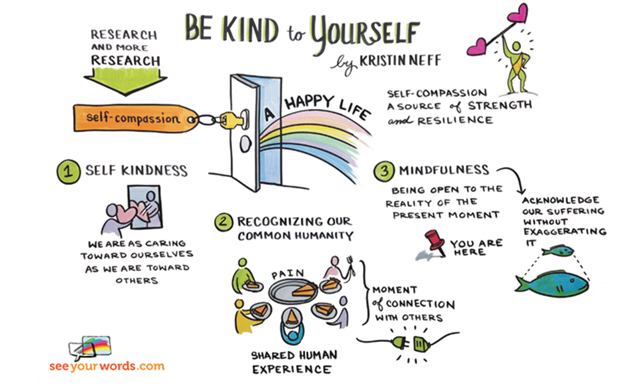 BE KIND to YOURSELF
by KRISTIN NEFF
RESEARCH
AND MORE
RESEARCH
self-compassion
A HAPPY LIFE
SELF-COMPASSION
A SOURCE of STRENGTH
and RESILIENCE
1 SELF KINDNESS
WE ARE AS CARING
TOWARD OURSELVES
AS WE ARE TOWARD
OTHERS
2 RECOGNIZING OUR
COMMON HUMANITY
PAIN
SHARED HUMAN
EXPERIENCE
MOMENT
of CONNECTION
WITH OTHERS
3 MINDFULNESS
BEING OPEN TO THE
REALITY OF THE
PRESENT MOMENT
YOU ARE
HERE
ACKNOWLEDGE
OUR SUFFERING
WITHOUT
EXAGGERATING
IT
seeyourwords.com